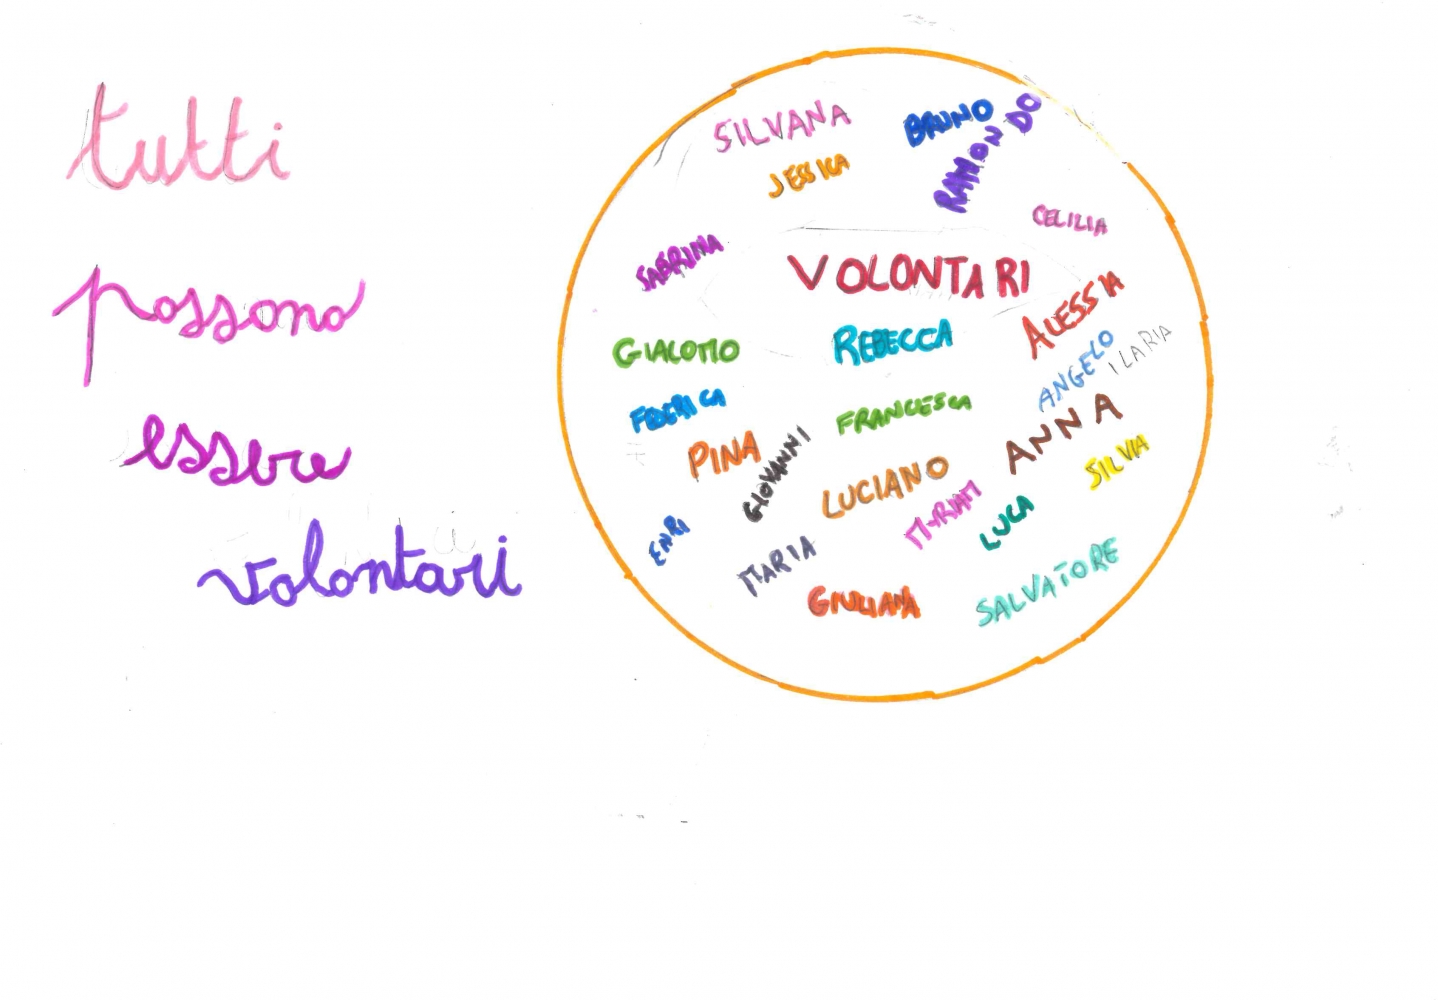 tutti
possono
essere
volontari
SILVANA
BRUNO
RAMONDO
JESSICA
CELILIA
SABRINA
VOLONTARI
ALESSIA
GIACOMO
REBECCA
ANGELO
ILARIA
FEDERICA
FRANCESCA
ANNA
PINA
GIOVANNI
LUCIANO
SILVIA
MYRIAM
LUCA
ENRI
MARIA
GIULIANA
SALVATORE